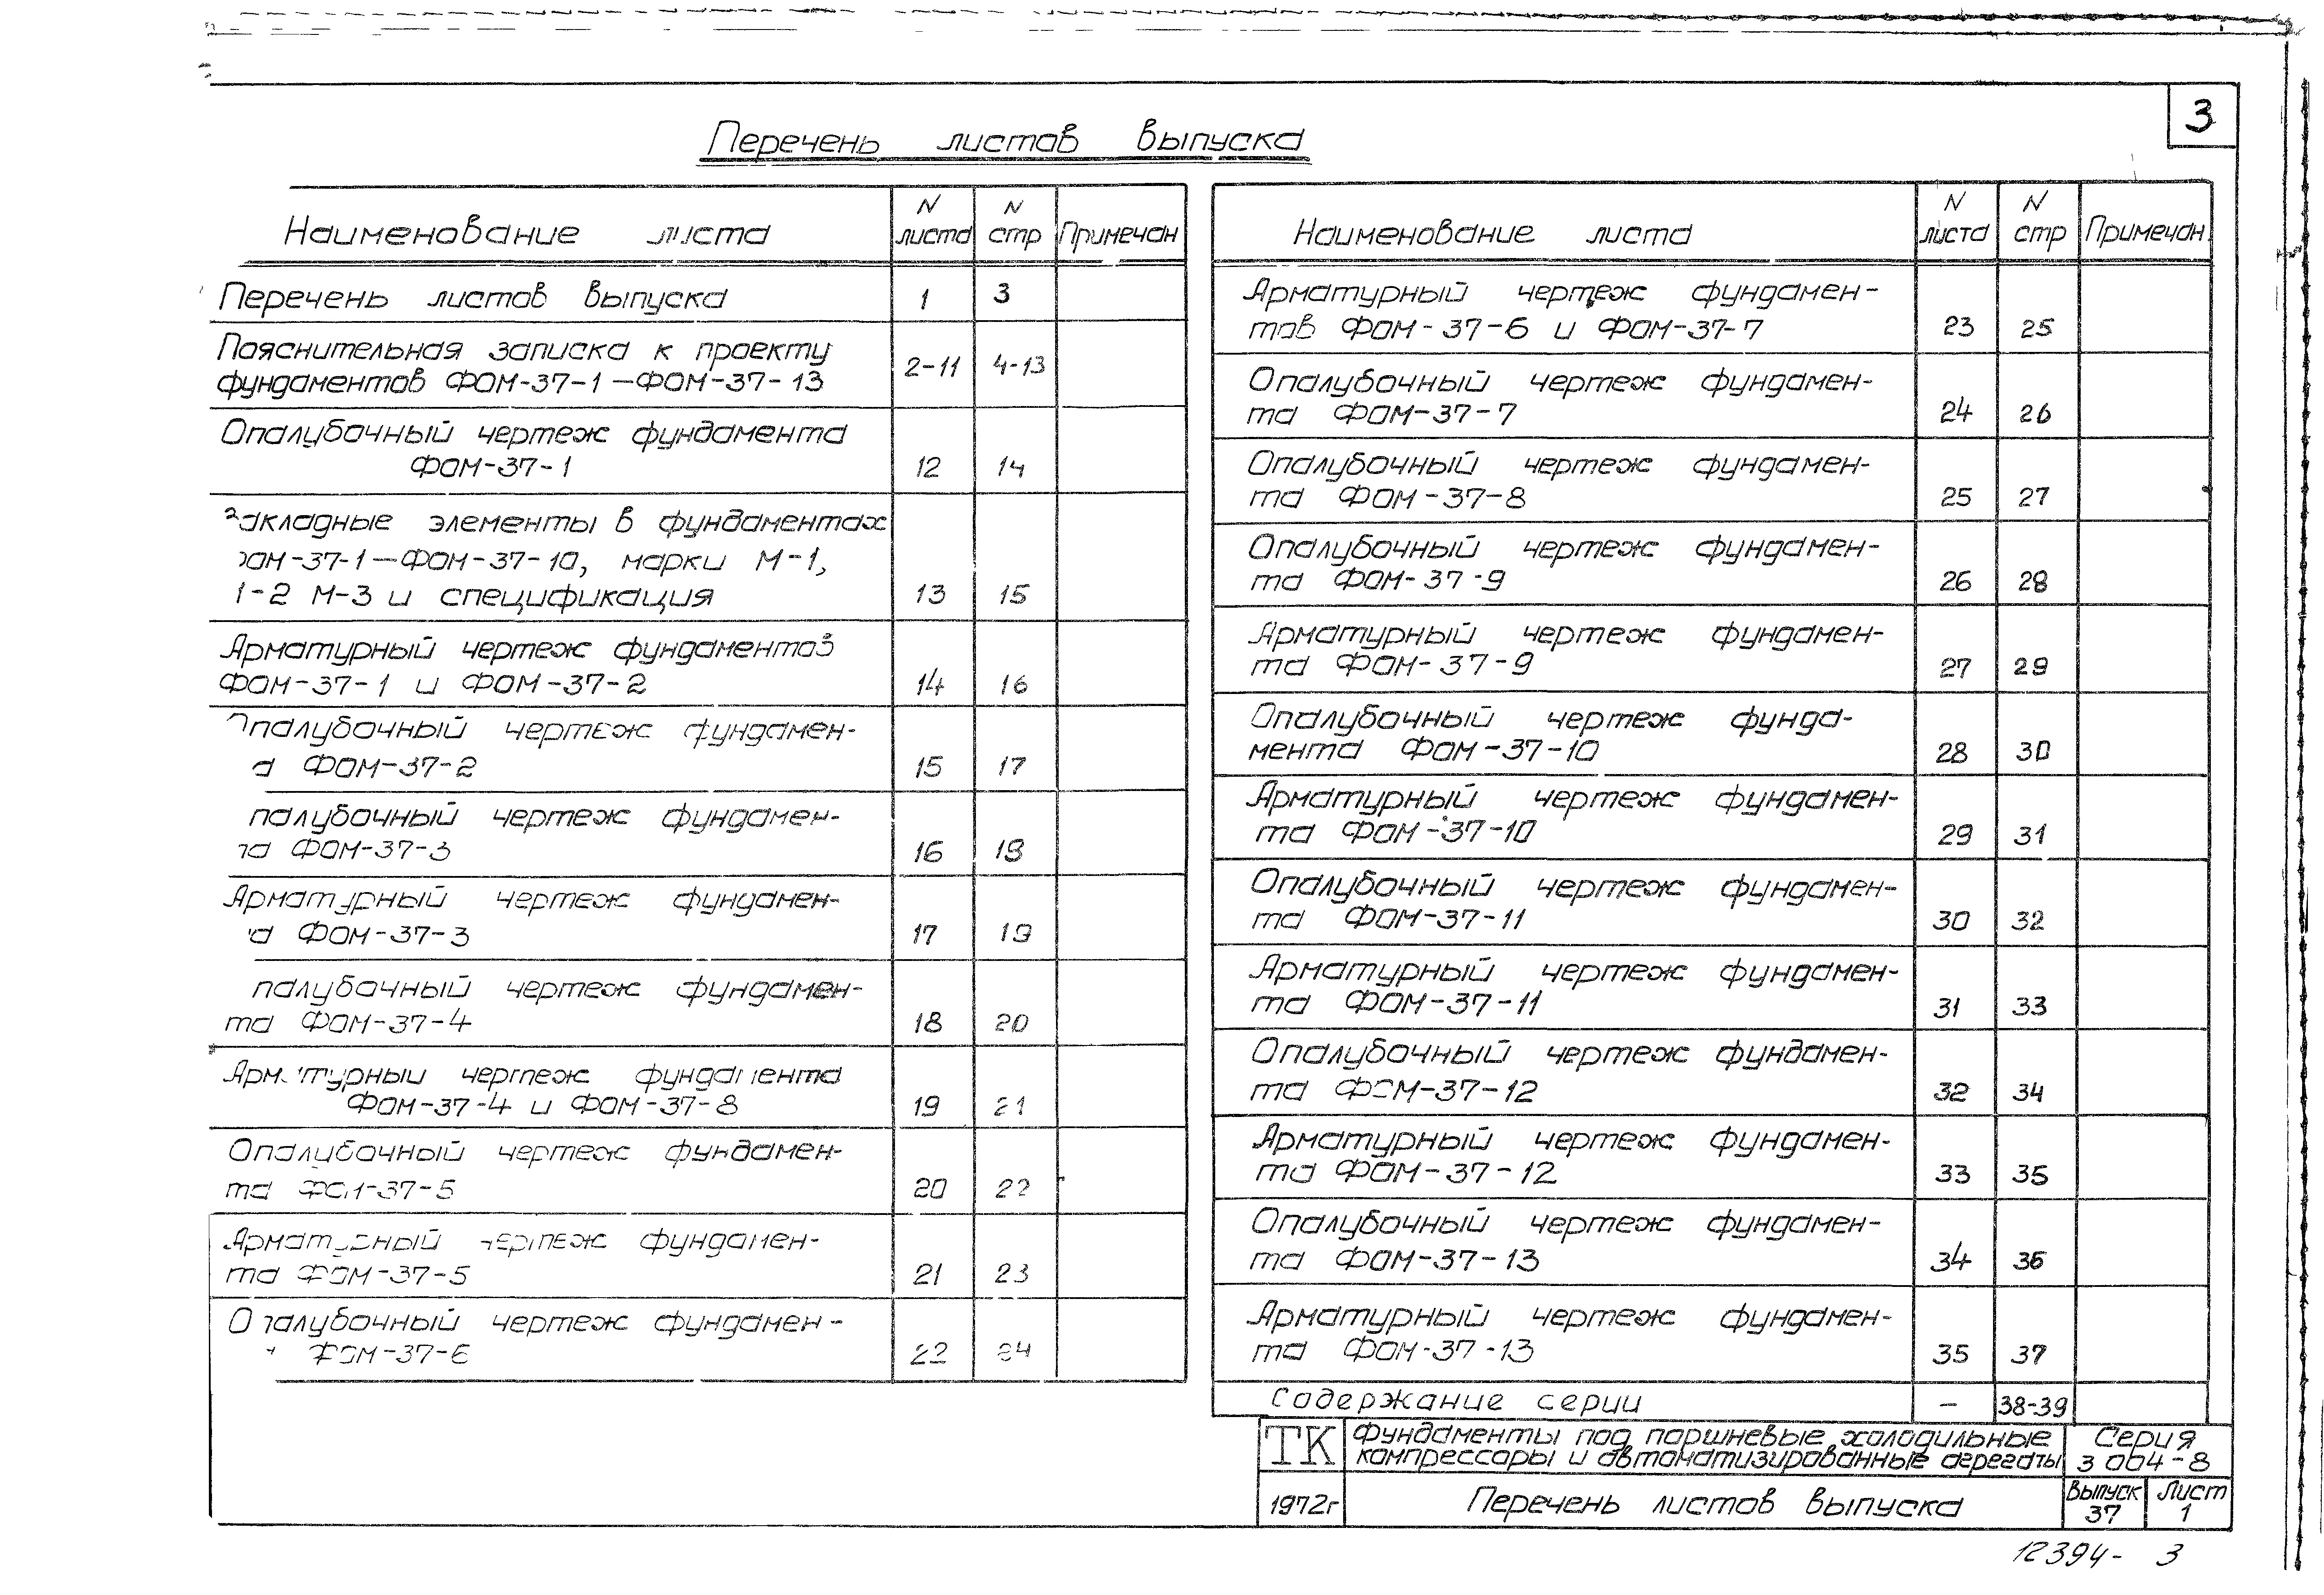 3
Перечень листов выпуска
Наименование листа | N листа | N стр | Примечан
Перечень листов выпуска | 1 | 3
Пояснительная записка к проекту
фундаментов ФОМ-37-1—ФОМ-37-13 | 2-11 | 4-13
Опалубочный чертеж фундамента
ФОМ-37-1 | 12 | 14
Закладные элементы в фундаментах
ФОМ-37-1—ФОМ-37-10, марки М-1,
М-2 М-3 и спецификация | 13 | 15
Арматурный чертеж фундаментов
ФОМ-37-1 и ФОМ-37-2 | 14 | 16
Опалубочный чертеж фундамен-
та ФОМ-37-2 | 15 | 17
Опалубочный чертеж фундамен-
та ФОМ-37-3 | 16 | 18
Арматурный чертеж фундамен-
та ФОМ-37-3 | 17 | 19
Опалубочный чертеж фундамен-
та ФОМ-37-4 | 18 | 20
Арматурный чертеж фундамента
ФОМ-37-4 и ФОМ-37-8 | 19 | 21
Опалубочный чертеж фундамен-
та ФОМ-37-5 | 20 | 22
Арматурный чертеж фундамен-
та ФОМ-37-5 | 21 | 23
Опалубочный чертеж фундамен-
та ФОМ-37-6 | 22 | 24
Наименование листа | N листа | N стр | Примечан
Арматурный чертеж фундамен-
тов ФОМ-37-6 и ФОМ-37-7 | 23 | 25
Опалубочный чертеж фундамен-
та ФОМ-37-7 | 24 | 26
Опалубочный чертеж фундамен-
та ФОМ-37-8 | 25 | 27
Опалубочный чертеж фундамен-
та ФОМ-37-9 | 26 | 28
Арматурный чертеж фундамен-
та ФОМ-37-9 | 27 | 29
Опалубочный чертеж фунда-
мента ФОМ-37-10 | 28 | 30
Арматурный чертеж фундамен-
та ФОМ-37-10 | 29 | 31
Опалубочный чертеж фундамен-
та ФОМ-37-11 | 30 | 32
Арматурный чертеж фундамен-
та ФОМ-37-11 | 31 | 33
Опалубочный чертеж фундамен-
та ФОМ-37-12 | 32 | 34
Арматурный чертеж фундамен-
та ФОМ-37-12 | 33 | 35
Опалубочный чертеж фундамен-
та ФОМ-37-13 | 34 | 36
Арматурный чертеж фундамен-
та ФОМ-37-13 | 35 | 37
Содержание серии | — | 38-39
ТК
Фундаменты под поршневые холодильные
компрессоры и автоматизированные агрегаты
Серия
3 004-8
1972г
Перечень листов выпуска
Выпуск
37
Лист
1
12394- 3